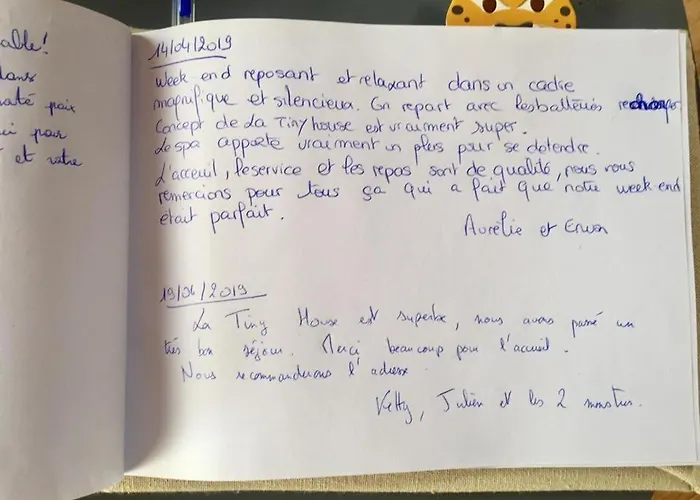 able!
dans
paix
pour
et votre
14/04/2019
Week end reposant et relaxant dans un cadre
magnifique et silencieux. On repart avec les batteries
Concept de la Tiny house est vraiment super.
Le spa apporte vraiment un plus pour se detendre.
L'acceuil, le service et les repas sont de qualité, nous vous
remercions pour tous ça qui a fait que notre week end
était parfait.
Aurélie et Erwan
19/04/2019
La Tiny House est superbe, nous avons passé un
très bon séjour. Merci beaucoup pour l'accueil.
Nous recommanderons l'adresse.
Ketty, Julien et les 2 monstres.